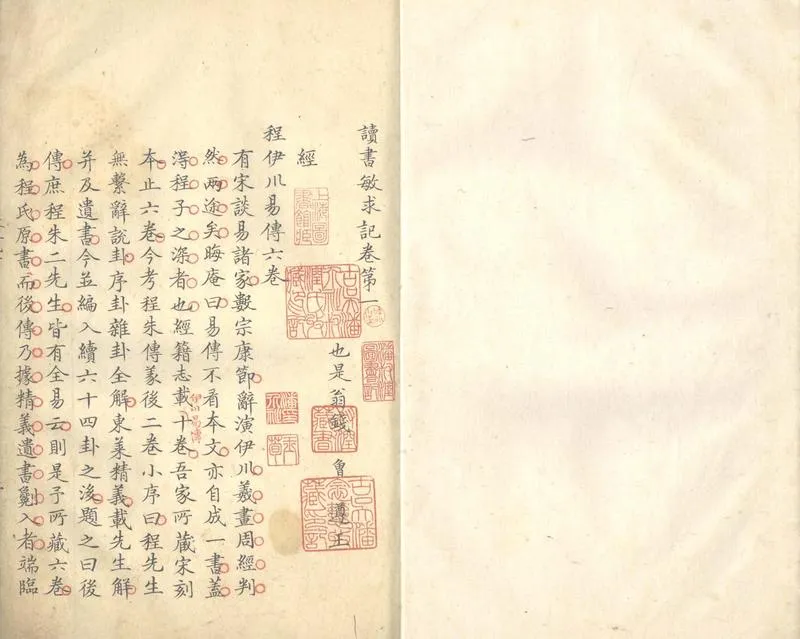 讀書敏求記卷第一
也是翁錢 曾 遵王
經
程伊川易傳六卷
有宋談易諸家數宗康節辭演伊川羲畫周經判
然兩途矣晦庵曰易傳不看本文亦自成一書蓋
淂程子之深者也經籍志載十卷吾家所藏宋刻
伊川易傳
本止六卷今考程朱傳義後二卷小序曰程先生
無繫辭說卦序卦雜卦全解東萊精義載先生解
并及遺書今並編入續六十四卦之後題之曰後
傳庶程朱二先生皆有全易云則是予所藏六卷
為程氏原書而後傳乃據精義遺書劖入者端臨